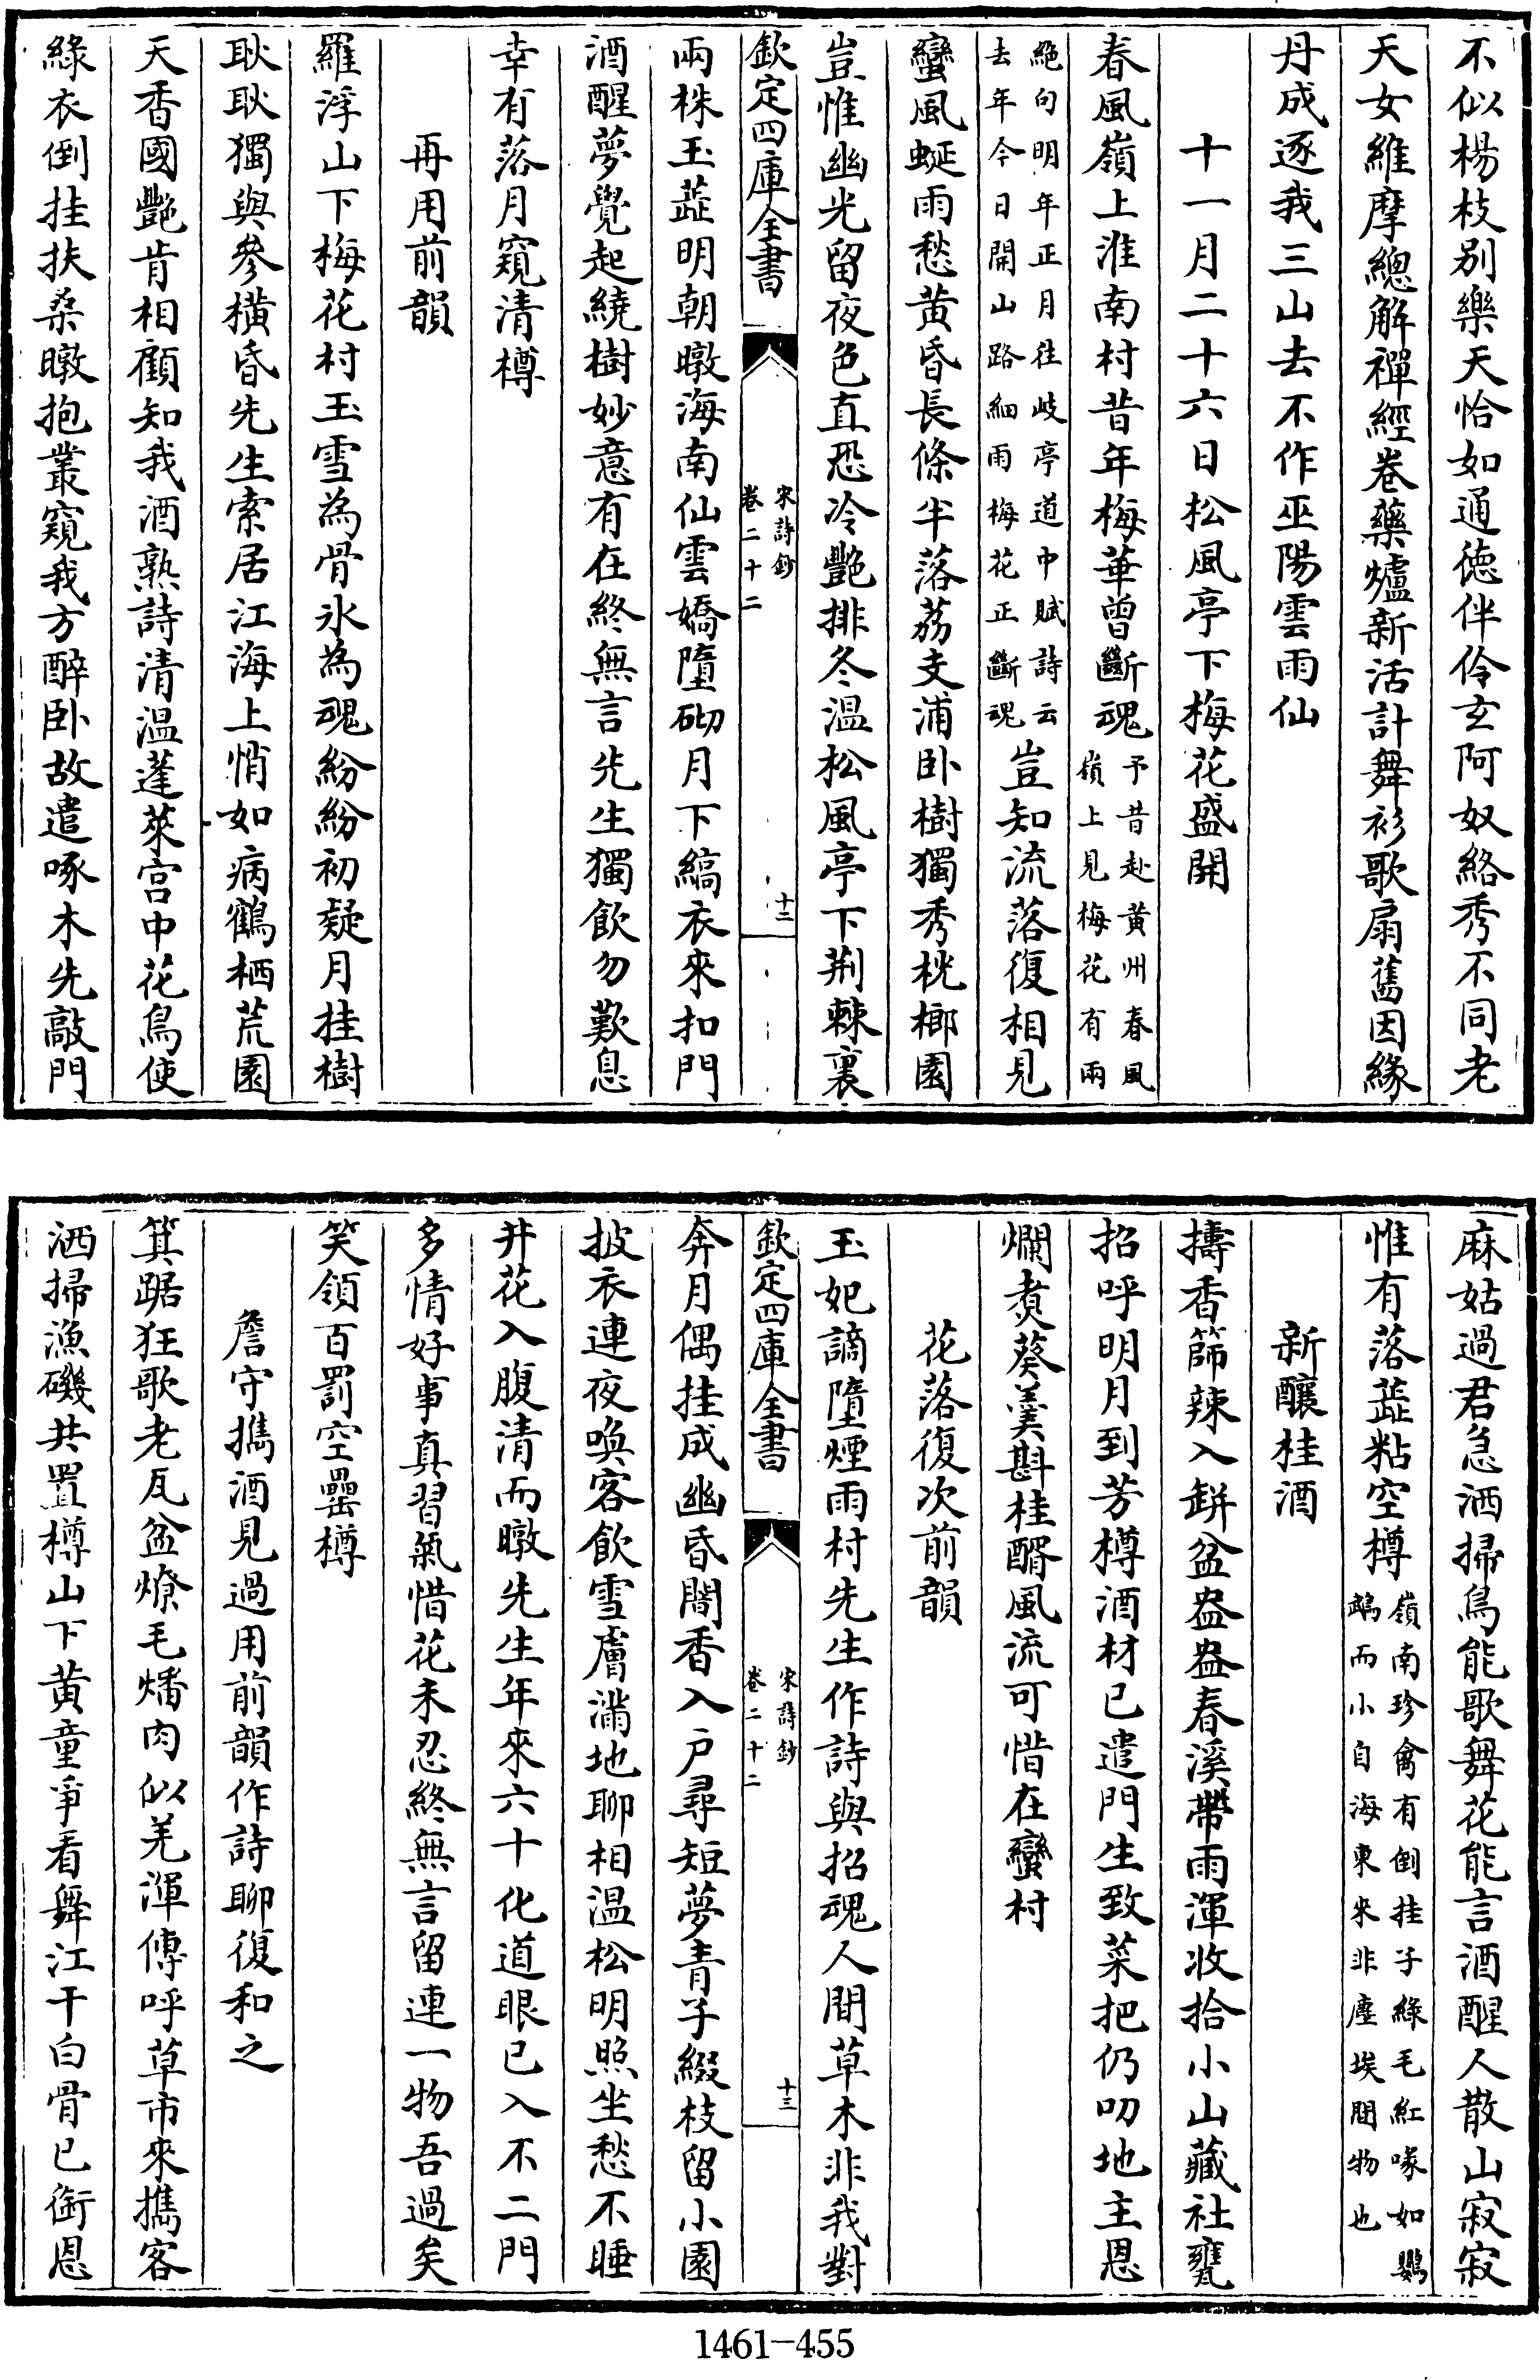 不似楊枝别樂天恰如通徳伴伶𤣥阿奴絡秀不同老
天女維摩總解禪經卷藥爐新活計舞衫歌扇舊因緣
丹成逐我三山去不作巫陽雲雨仙
十一月二十六日松風亭下梅花盛開
春風嶺上淮南村昔年梅華曾斷魂予昔赴黄州春風嶺上見梅花有兩
絶句明年正月往岐亭道中賦詩云去年今日開山路細雨梅花正斷魂豈知流落復相見
蠻風蜒雨愁黄昏長條半落荔支浦卧樹獨秀桄榔園
豈惟幽光留夜色直恐冷艷排冬温松風亭下荆棘裏
欽定四庫全書 宋詩鈔 卷二十二 十二
兩株玉蘂明朝暾海南仙雲嬌墮砌月下縞衣來扣門
酒醒夢覺起繞樹妙意有在終無言先生獨飲勿歎息
幸有落月窺清樽
再用前韻
羅浮山下梅花村玉雪為骨氷為魂紛紛初疑月挂樹
耿耿獨與參橫昏先生索居江海上悄如病鶴栖荒園
天香國艷肯相顧知我酒熟詩清温蓬萊宫中花鳥使
綠衣倒挂扶桑暾抱叢窺我方醉卧故遣啄木先敲門
麻姑過君急洒掃鳥能歌舞花能言酒醒人散山寂寂
惟有落蘂粘空樽嶺南珍禽有倒挂子綠毛紅喙如鸚鵡而小自海東來非塵埃間物也
新釀桂酒
擣香篩辣入缾盆盎盎春溪帶雨渾收拾小山藏社甕
招呼明月到芳樽酒材已遣門生致菜把仍叨地主恩
爛煑葵羹斟桂醑風流可惜在蠻村
花落復次前韻
玉妃謫墮煙雨村先生作詩與招魂人間草木非我對
欽定四庫全書 宋詩鈔 卷二十二 十三
奔月偶挂成幽昏闇香入户尋短夢青子綴枝留小園
披衣連夜喚客飲雪膚滿地聊相温松明照坐愁不睡
井花入腹清而暾先生年來六十化道眼已入不二門
多情好事真習氣惜花未忍終無言留連一物吾過矣
笑領百罰空罍樽
詹守攜酒見過用前韻作詩聊復和之
箕踞狂歌老瓦盆燎毛燔肉似羌渾傳呼草市來攜客
洒掃漁磯共置樽山下黄童爭看舞江干白骨已銜恩
1461-455